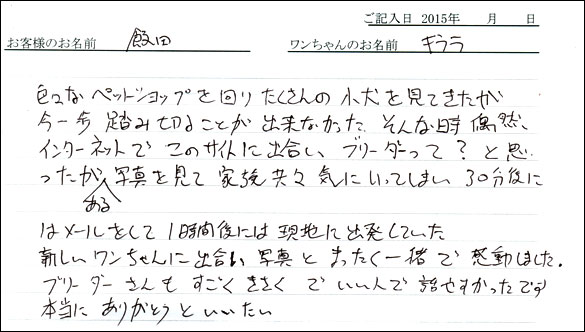 ご記入日 2015年　　月　　日
お客様のお名前　飯田　ワンちゃんのお名前　キララ
色々な ペットショップを回り たくさんの 小犬を見てきたが
今一歩 踏み切ることが 出来なかった。そんな時 偶然、
インターネットで このサイトに出合い、ブリーダーって？と思
ったが ある 写真を見て 家族共々 気にいってしまい 30分後に
はメールをして 1時間後には 現地に出発していた
新しいワンちゃんに出合い 写真と まったく一緒で 感動しました。
ブリーダーさんも すごく きさくで いい人で 話やすかったです
本当に ありがとうといいたい